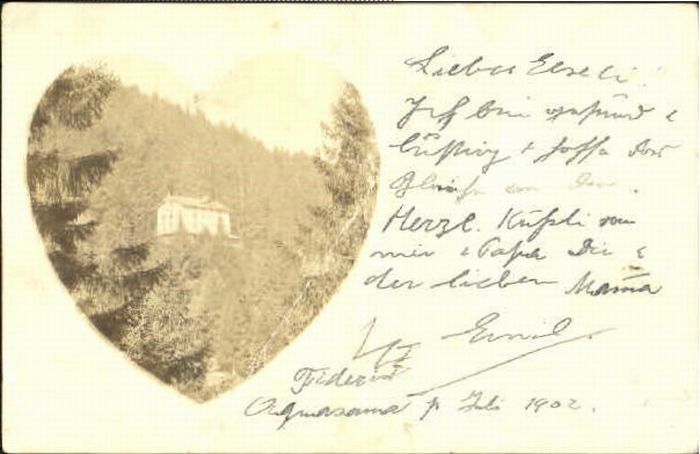 Liebes Elseli!
Ich bin gesund &
lustig & hoffe das
Gleiche von Dir.
Herzl. Küssli von
mir & Papa Dir &
der lieben Mama
Emil.
Acquasana Juli 1902.